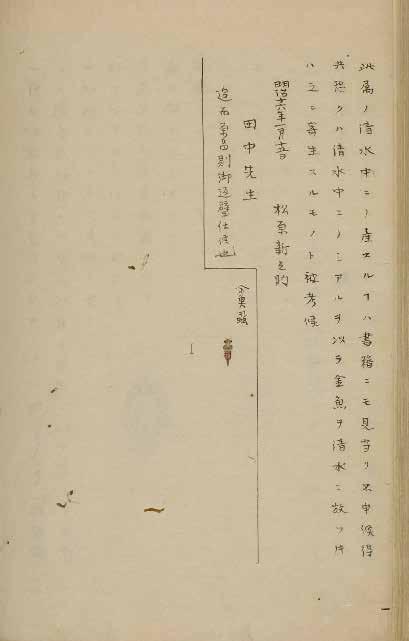 此属ノ清水中ニノ産スルヿハ書籍ニモ見当リ不申候得
共恐クハ清水中ニノミアルヲ以テ金魚ヲ清水ニ放ツ片
ハ之ニ寄生スルモノト被考候
明治十六年一月
松原新之助
田中先生
追而
別御返璧仕候也
金魚蝨